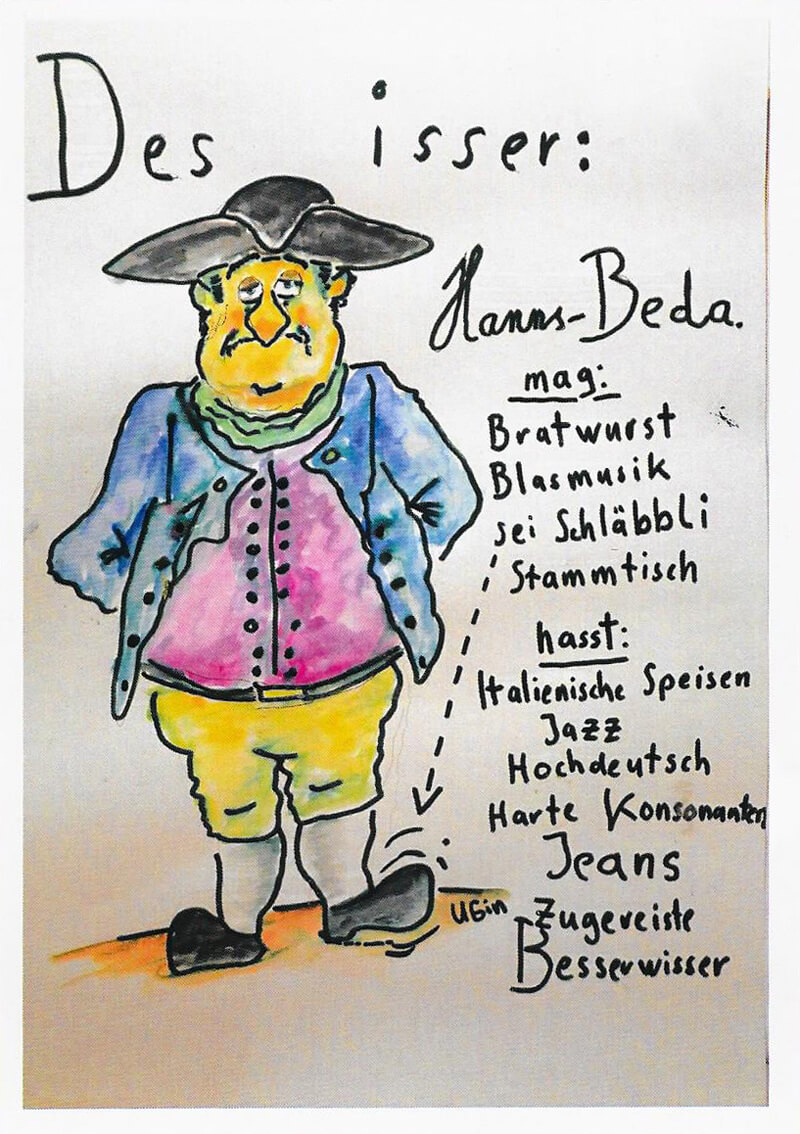 Des isser:
Hanns-Beda.
mag:
Bratwurst
Blasmusik
sei Schläbbli
Stammtisch
hasst:
Italienische Speisen
Jazz
Hochdeutsch
Harte Konsonanten
Jeans
Zugereiste
Besserwisser
UGin